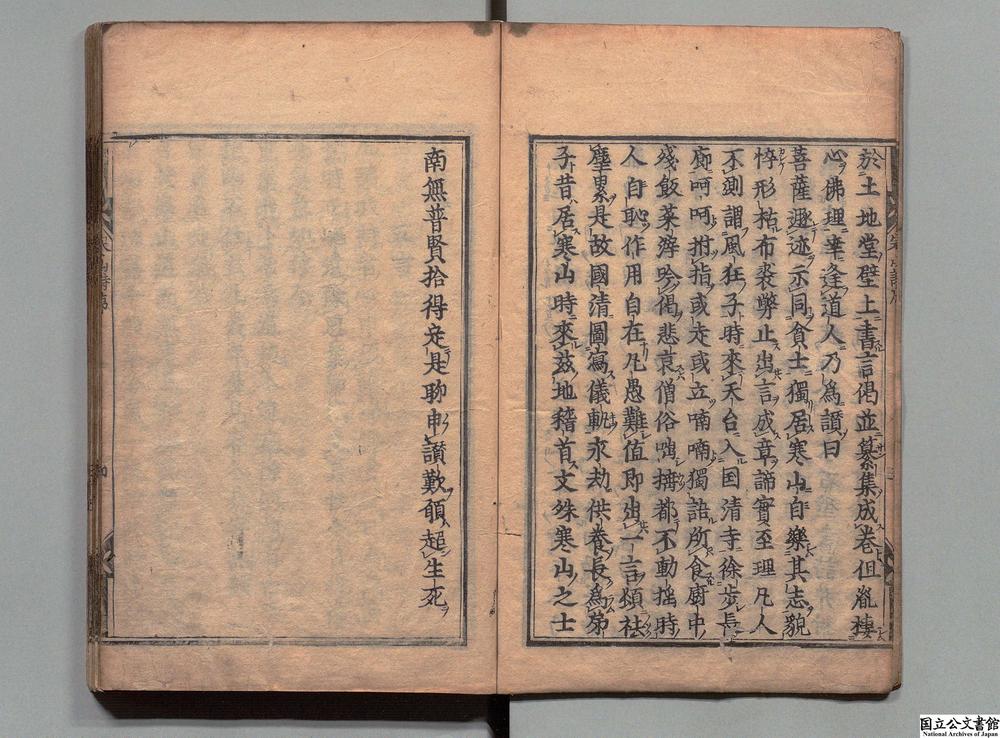 於土地堂壁上書言偈並纂集成卷但胤棲
心佛理幸逢道人乃爲讃曰
菩薩遯迹示同貧士獨居寒山自樂其志貌
悴形枯布裘弊止出言成章諦實至理凡人
不測謂風狂子時來天台入国清寺徐步長
廊呵呵拊指或走或立喃喃獨語所食厨中
殘飯菜滓吟偈悲哀僧俗咄捶都不動搖時
人自恥作用自在凡愚難值即出一言頓袪
塵累是故國清圖寫儀軌永劫供養長爲弟
子昔居寒山時來茲地稽首文殊寒山之士
南無普賢拾得定是聊申讃歎願超生死
国立公文書館
National Archives of Japan